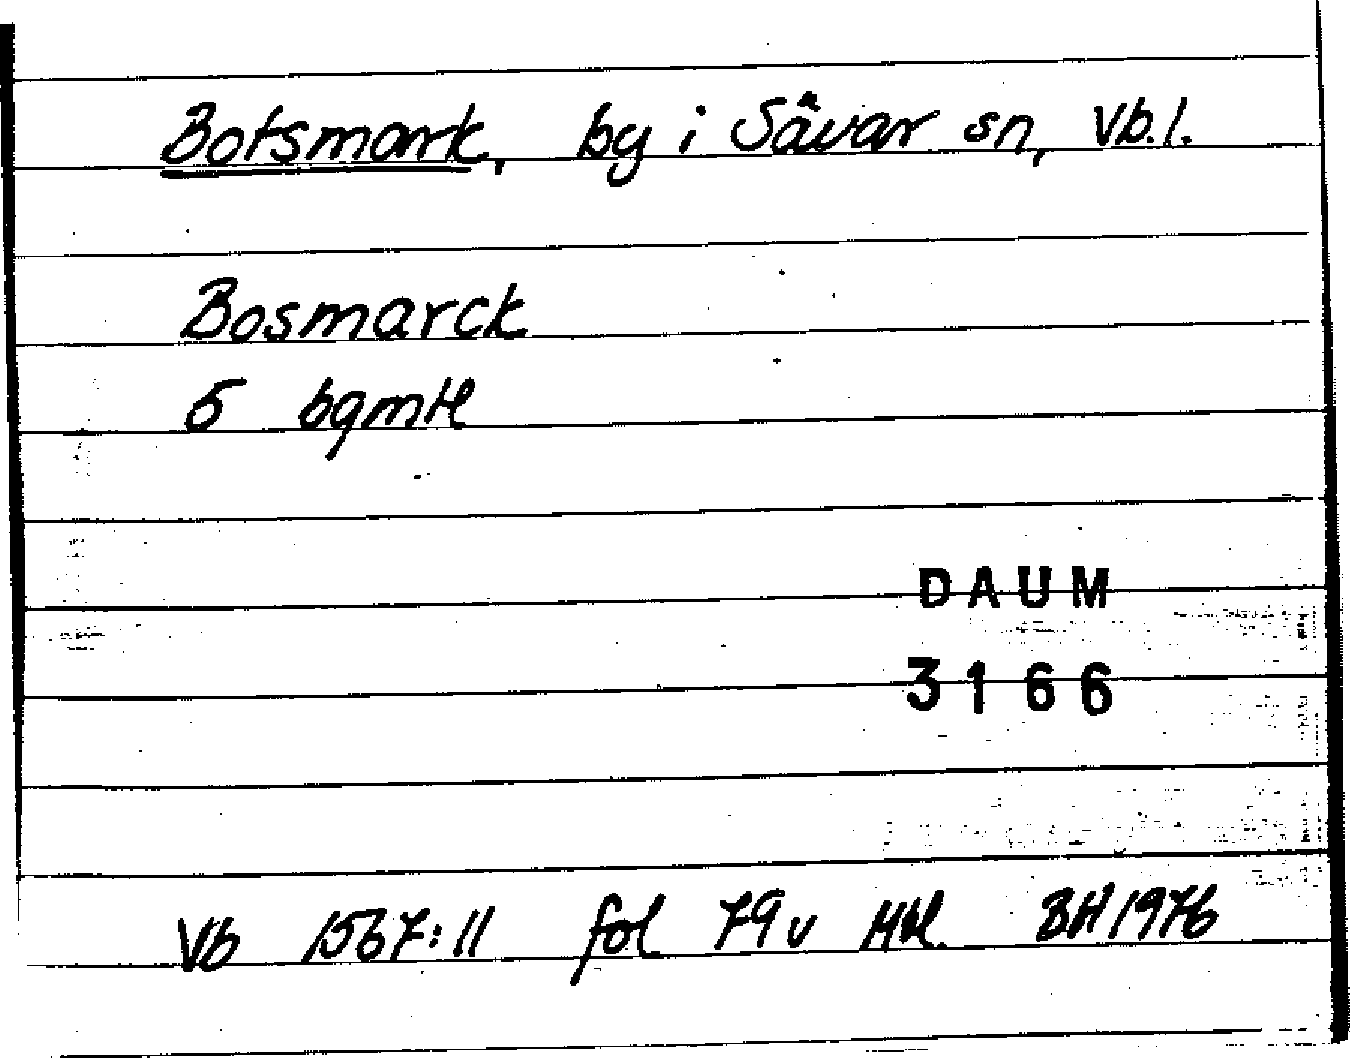 Botsmark, by i Sävar sn, Vb.l.
Bosmarck
5 bgmtl
DAUM
3166
Vb 1567:11 fol 79v Mtl. BH 1976